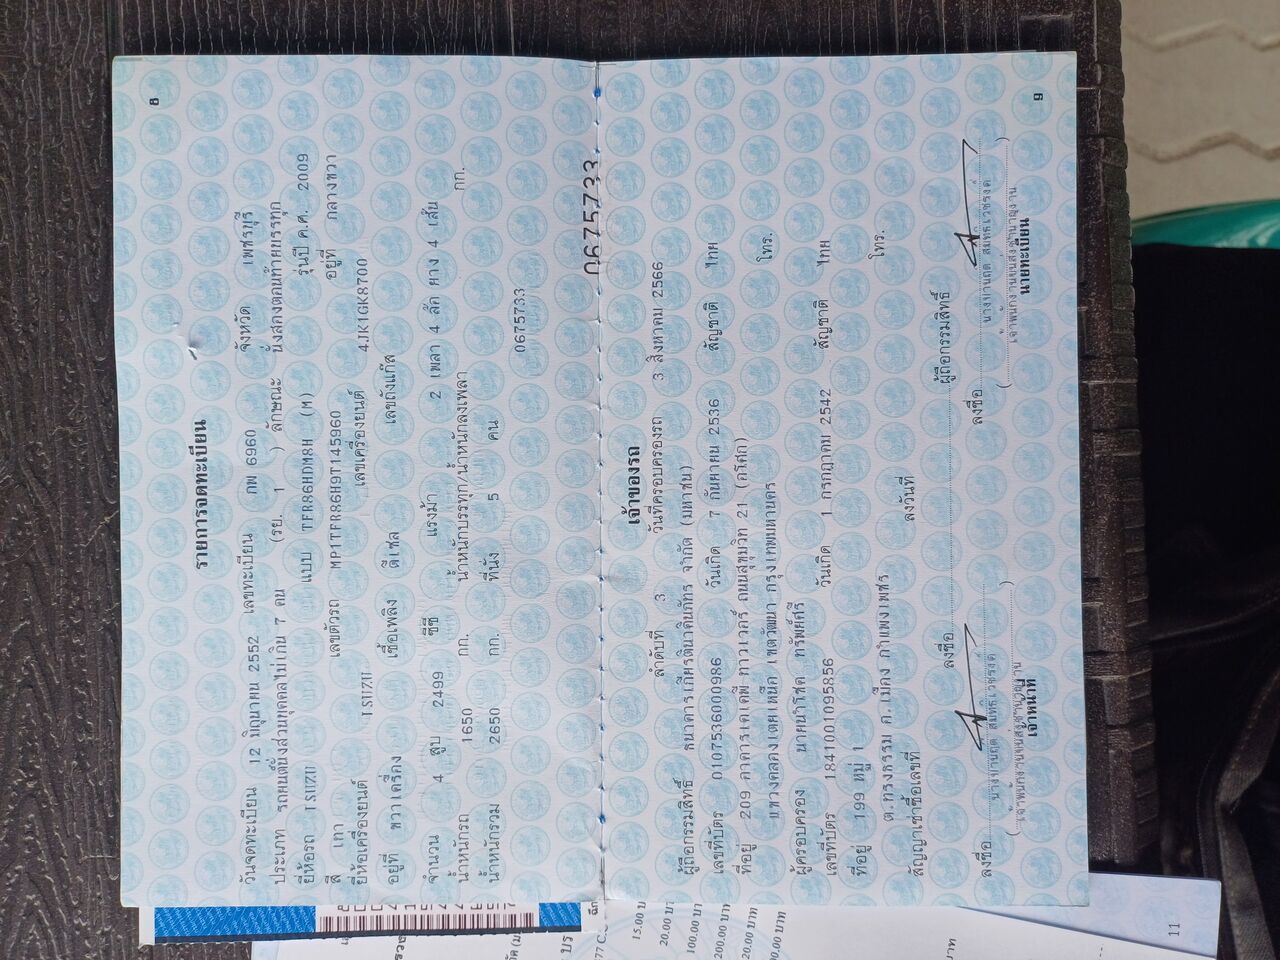 8
รายการจดทะเบียน
วันจดทะเบียน 12 มิถุนายน 2552 เลขทะเบียน กพ 6960 จังหวัด เพชรบุรี
ประเภท รถยนต์นั่งส่วนบุคคลไม่เกิน 7 คน (รย. 1 ) ลักษณะ นั่งสองตอนท้ายบรรทุก
ยี่ห้อรถ ISUZU แบบ TFR86HDM8H (M) รุ่นปี ค.ศ. 2009
สี เทา เลขตัวรถ MP1TFR86H9T145960 อยู่ที่ กลางขวา
ยี่ห้อเครื่องยนต์ ISUZU เลขเครื่องยนต์ 4JK1GK8700
อยู่ที่ ขวาเครื่อง เชื้อเพลิง ดีเซล เลขถังแก๊ส
จำนวน 4 สูบ 2499 ซีซี แรงม้า 2 เพลา 4 ล้อ ยาง 4 เส้น
น้ำหนักรถ 1650 กก. น้ำหนักบรรทุก/น้ำหนักลงเพลา กก.
น้ำหนักรวม 2650 กก. ที่นั่ง 5 คน
0675733
0675733
เจ้าของรถ
ลำดับที่ 3 วันที่ครอบครองรถ 3 สิงหาคม 2566
ผู้ถือกรรมสิทธิ์ ธนาคารเกียรตินาคินภัทร จำกัด (มหาชน)
เลขที่บัตร 0107536000986 วันเกิด 7 กันยายน 2536 สัญชาติ ไทย
ที่อยู่ 209 อาคารเคเคพี ทาวเวอร์ ถนนสุขุมวิท 21 (อโศก) โทร.
แขวงคลองเตยเหนือ เขตวัฒนา กรุงเทพมหานคร
ผู้ครอบครอง นายนวิโชต ทรัพย์ศรี
เลขที่บัตร 1841001095856 วันเกิด 1 กรกฎาคม 2542 สัญชาติ ไทย
ที่อยู่ 199 หมู่ 1 โทร.
ต.ทรงธรรม อ.เมือง กำแพงเพชร
สัญญาเช่าซื้อเลขที่ ลงวันที่
ลงชื่อ ผู้ถือกรรมสิทธิ์
ลงชื่อ ลงชื่อ
( ) ( )
เจ้าหน้าที่ นายทะเบียน
9
15.00 บาท
20.00 บาท
100.00 บาท
200.00 บาท
20.00 บาท
00 บาท
บาท
11